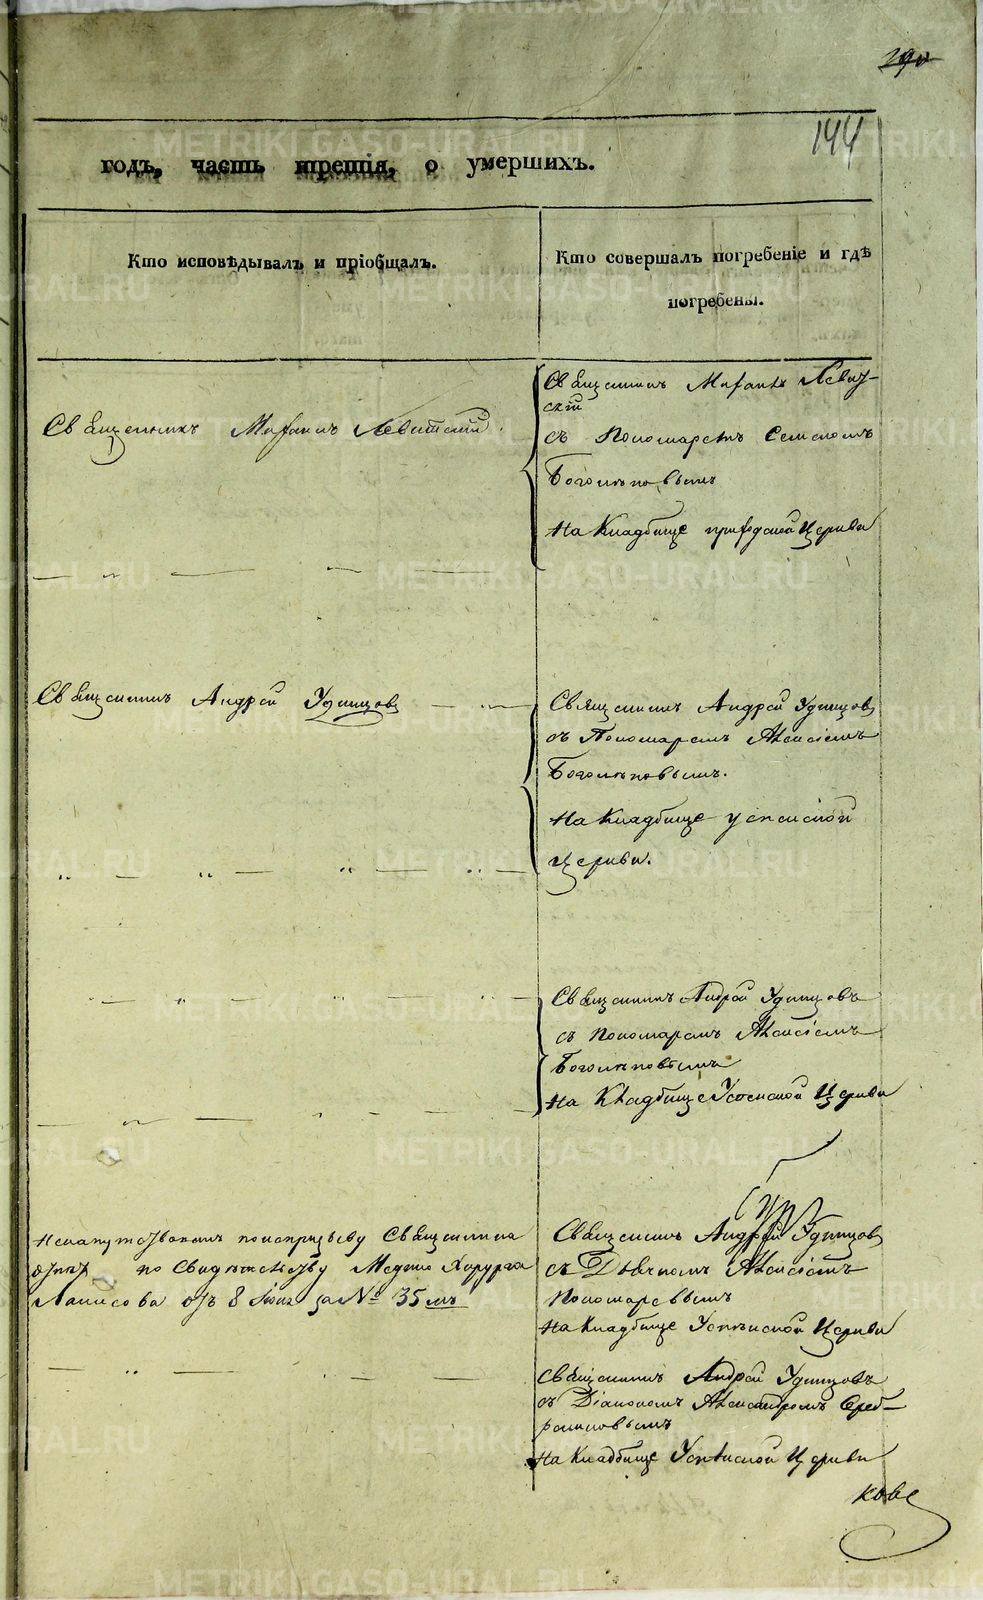 290
144
годъ, часть третія, о умершихъ.
Кто исповѣдывалъ и пріобщалъ.
Кто совершалъ погребеніе и гдѣ
погребены.
Священникъ Левитскій.
Священникъ Левит-
скій
съ Пономаремъ Семеномъ
Боголѣповымъ
На Кладбище приходской Церкви
Священникъ Андрей Удинцовъ
Священникъ Андрей Удинцовъ
съ Пономаремъ Алексіемъ
Боголѣповымъ.
На Кладбище успенской
Церкви.
Священникъ Андрей Удинцовъ
съ Пономаремъ Алексіемъ
Боголѣповымъ
На Кладбище Успенской Церкви
Священника
по Свидѣтельству Медико Хирурга
отъ 8 за № 35мъ
Священникъ Андрей Удинцовъ
съ Дьячкомъ Алексіемъ
Пономаревымъ
На Кладбище Успенской Церкви
Священникъ Андрей Удинцовъ
съ Діакономъ Александромъ Среб-
рениковымъ
На Кладбище Успенской Церкви
METRIKI.GASO-URAL.RU